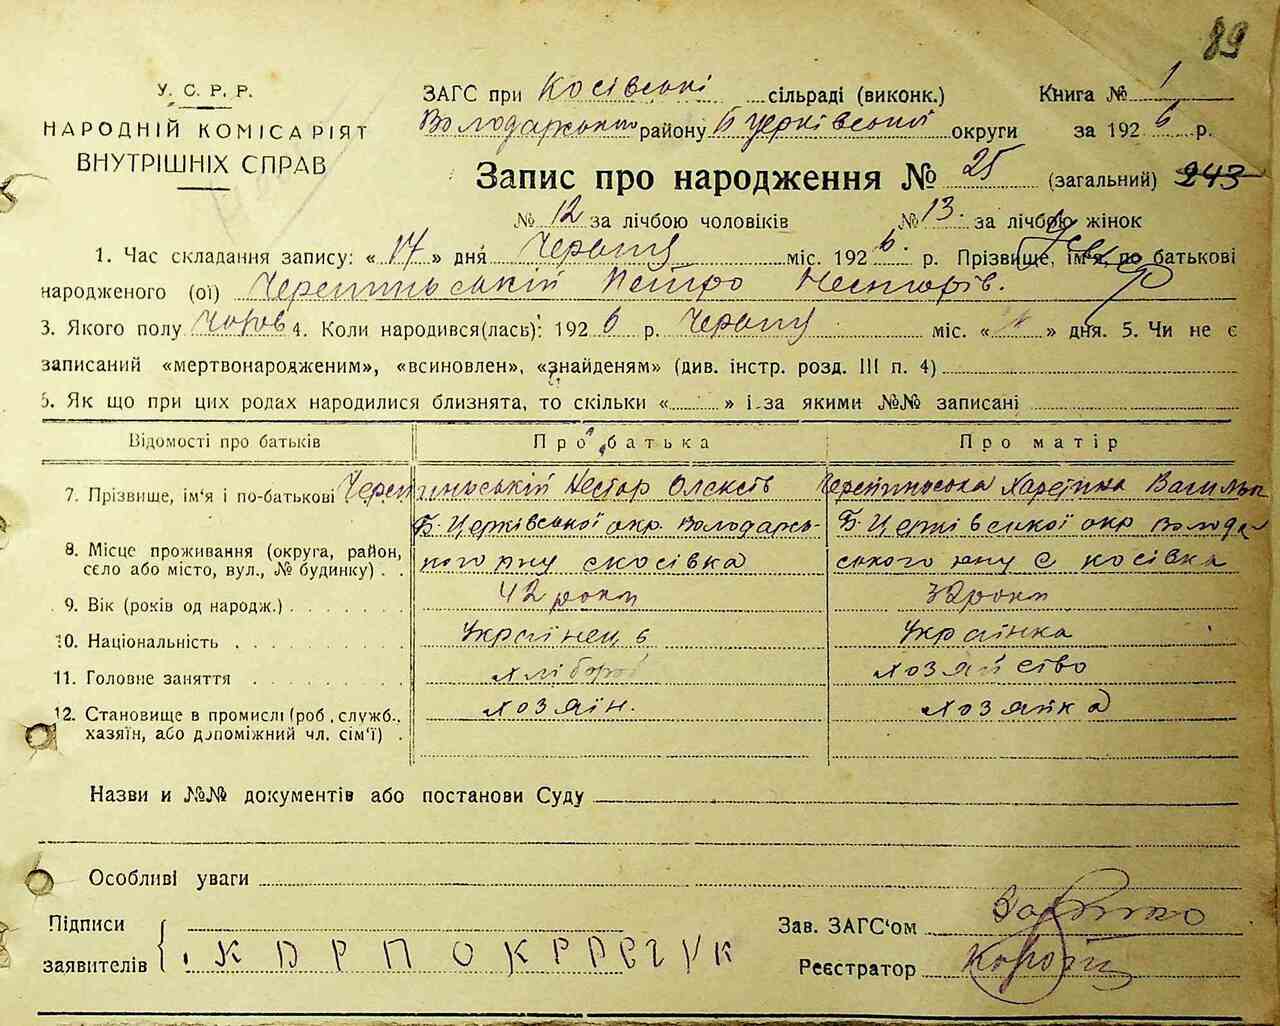 89
У. С. Р. Р.
НАРОДНІЙ КОМІСАРІЯТ
ВНУТРІШНІХ СПРАВ
ЗАГС при Косівські сільраді (виконк.) Книга № 1
Володарського району Б Церківської округи за 1926 р.
Запис про народження № 25 (загальний) 243
№ 12 за лічбою чоловіків № 13. за лічбою жінок
1. Час складання запису: « 17 » дня Червня міс. 1926. р. Прізвище, ім'я, по батькові
народженого (ої) Черепинський Петро Несторів.
3. Якого полу 4. Коли народився(лась): 1926 р. Червня міс. « » дня. 5. Чи не є
записаний «мертвонародженим», «всиновлен», «знайденям» (див. інстр. розд. III п. 4)
6. Як що при цих родах народилися близнята, то скільки « » і за якими №№ записані
Відомості про батьків Про батька Про матір
7. Прізвище, ім'я і по-батькові Черепинський Нестор Олексів Черепинська Харетина Василь
Б. Церківської окр. Володарсь- Б. Церківської окр Волода
8. Місце проживання (округа, район, село або місто, вул., № будинку) . . кого рну с косівка ського рну с косівка
9. Вік (років од народж.) 42 роки 32 роки
10. Національність Українець Українка
11. Головне заняття хлібороб хозяйство
12. Становище в промислі (роб., служб., хазяїн, або допоміжний чл. сім'ї) . хозяін. хозяйка
Назви и №№ документів або постанови Суду
Особливі уваги
Підписи
заявителів
Зав. ЗАГС'ом
Реєстратор